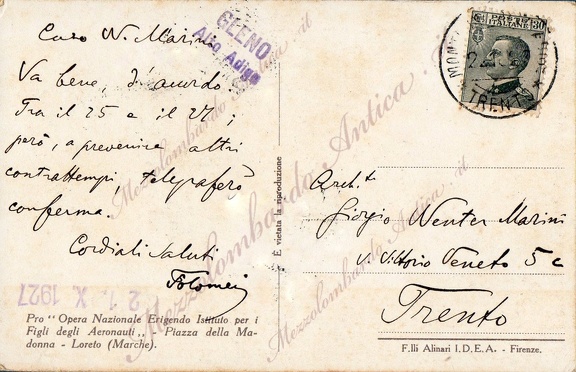 Caro W. Marini
Va bene, d'accordo
Tra il 25 e il 27;
però, a prevenire altri
contrattempi, telegraferò
conferma.
Cordiali saluti
Tolomei
GLENO
Alto Adige
21. X. 1927
Pro "Opera Nazionale Erigendo Istituto per i
Figli degli Aeronauti„ - Piazza della Ma-
donna - Loreto (Marche).
È vietata la riproduzione
POSTE ITALIANE 30
TRENTO
Arch.t
Giorgio Wenter Marini
v. Vittorio Veneto 5c
Trento
F.lli Alinari I.D.E.A. - Firenze.
Mezzolombardo Antica .it
Mezzolombardo Antica .it
Mezzolombardo Antica .it